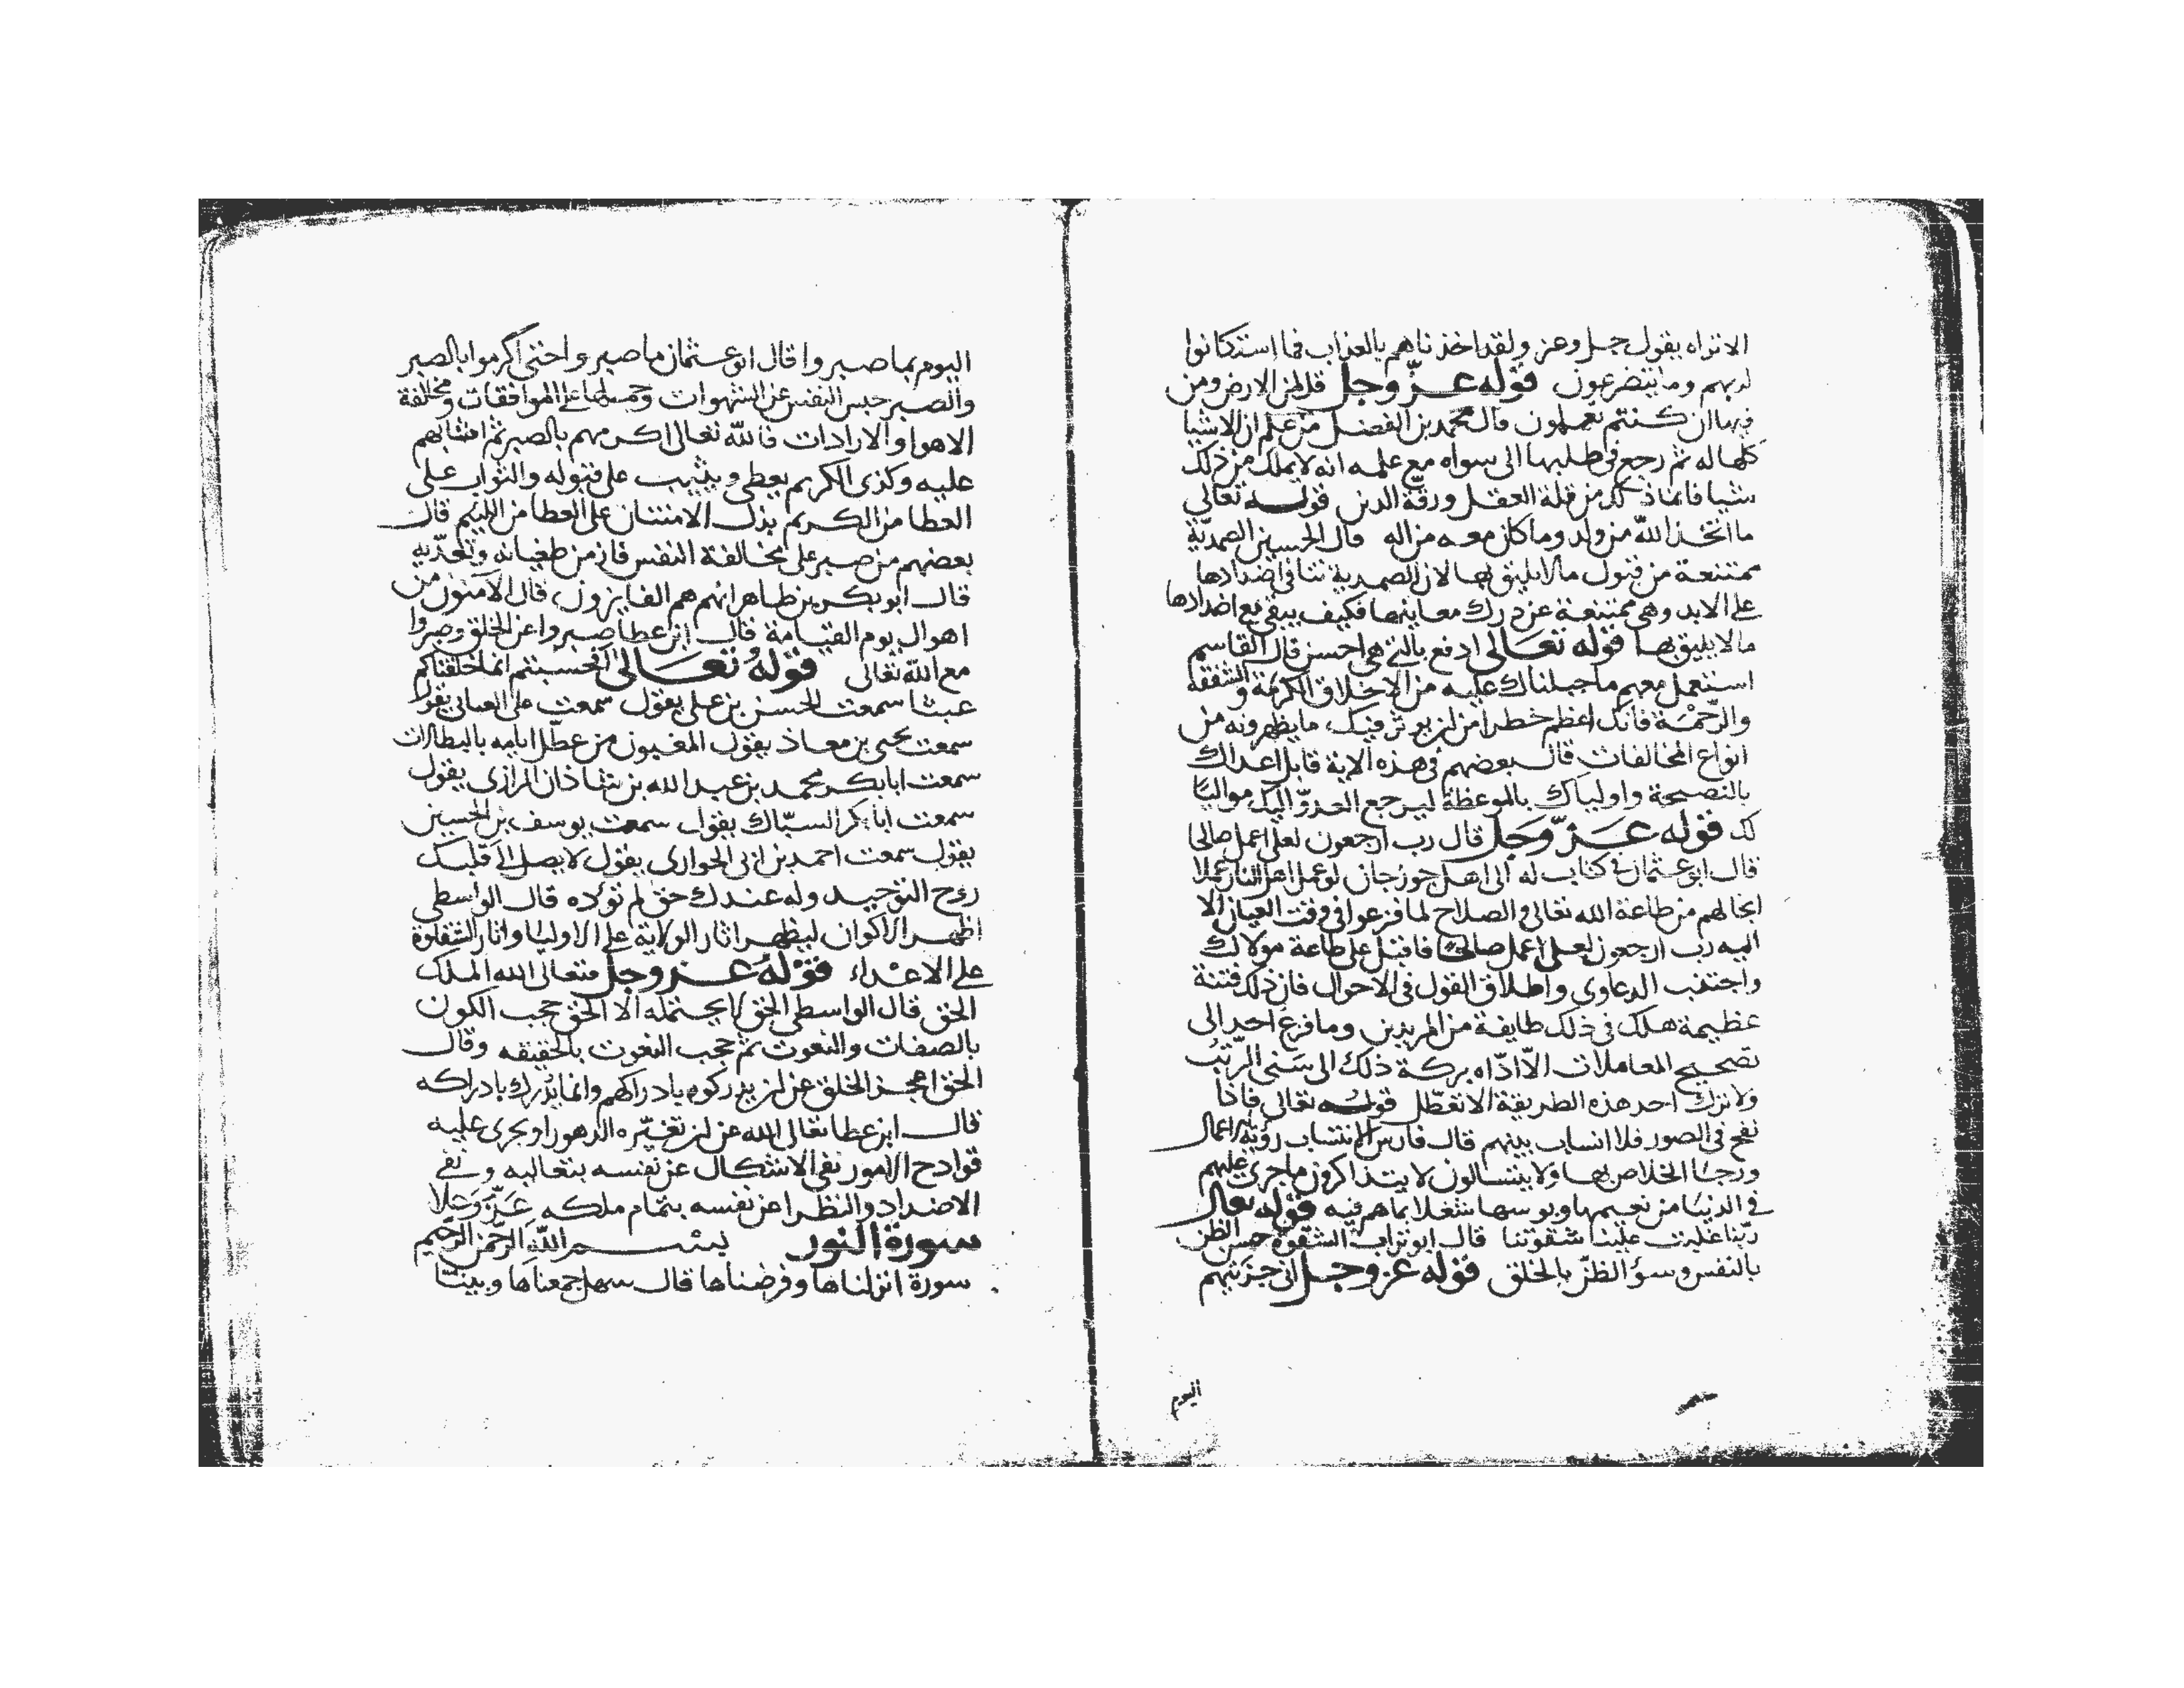 الا تراه يقول جل وعز ولقد اخذناهم بالعذاب فما استكانوا
لربهم وما يتضرعون قوله عز وجل قل لمن الارض ومن
فيها ان كنتم تعلمون قال محمد بن الفضل من علم ان الاشيا
كلها له ثم رجع في طلبها الى سواه مع علمه انه لا يملك من ذلك
شيا فانما ذلك من قلة العقل ورقة الدين قوله تعالى
ما اتخذ الله من ولد وما كان معه من اله قال الحسين الصمدية
ممتنعة من قبول ما لا يليق بها لان الصمدية تنافي اضدادها
على الابد وهي ممتنعة عن درك معاينها فكيف يبقى مع اضدادها
ما لا يليق بها قوله تعالى ادفع بالتي هي احسن قال القاسم
استعمل معهم ما جبلناك عليه من الاخلاق الكريمة والشفقة
والرحمة فانك اعظم خطرا من ان يوثر فيك ما يظهرونه من
انواع المخالفات قال بعضهم في هذه الاية قابل اعداك
بالنصيحة واولياك بالموعظة ليرجع العدو اليك مواليا
لك قوله عز وجل قال رب ارجعون لعلي اعمل صالحا
قال ابو عثمان في كتاب له الى اهل جوزجان لو عمل اهل النار عملا
انجا لهم من طاعة الله تعالى والصلاح لما فزعوا في وقت العيان الا
اليه رب ارجعون لعلي اعمل صالحا فاقبل على طاعة مولاك
واجتنب الدعاوي واطلاق القول في الاحوال فان ذلك فتنة
عظيمة هلك في ذلك طايفة من المريدين وما فزع احد الى
تصحيح المعاملات الا اداه بركة ذلك الى سنى الرتب
ولا ترك احد هذه الطريقة الا تعطل قوله تعالى فاذا
نفخ في الصور فلا انساب بينهم قال فارس الانتساب رؤية الاعمال
ورجا الخلاص بها ولا يتسالون لا يتذاكرون ما جرى عليهم
في الدنيا من نعيمها وبوسها شغلا بما هم فيه قوله تعالى
ربنا غلبت علينا شقوتنا قال ابو تراب الشقوة حسن الظن
بالنفس وسؤ الظن بالخلق قوله عز وجل اني جزيتهم
اليوم
اليوم بما صبروا قال ابو عثمان ما صبروا حتى اكرموا بالصبر
والصبر حبس النفس عن الشهوات وحملها على الموافقات ومخالفة
الاهوا والارادات فالله تعالى اكرمهم بالصبر ثم اثابهم
عليه وكذى الكريم يعطي ويثيب على قبوله والثواب على
العطا من الكريم بذل الامتنان على العطا من اللئيم قال
بعضهم من صبر على مخالفة النفس فاز من طغيانه وتعديه
قال ابو بكر بن طاهر انهم هم الفايزون قال الآمنون من
اهوال يوم القيامة قال ابن عطا صبروا عن الخلق وصبروا
مع الله تعالى قوله تعالى افحسبتم انما خلقناكم
عبثا سمعت الحسن بن علي يقول سمعت علي يقول
سمعت يحيى بن معاذ يقول المغبون من عطل ايامه بالبطالات
سمعت ابا بكر محمد بن عبد الله بن شاذان الرازي يقول
سمعت ابا بكر السباك يقول سمعت يوسف بن الحسين
يقول سمعت احمد بن ابي الحواري يقول لا يصل الى قلبك
روح التوحيد وله عندك حق لم تؤده قال الواسطي
اظهر الاكوان ليظهر اثار الولاية على الاوليا واثار الشقاوة
على الاعداء قوله عز وجل فتعالى الله الملك
الحق قال الواسطي الحق لا يحتمله الا الحق حجب الكون
بالصفات والنعوت ثم حجب النعوت بالحقيقه وقال
الحق اعجز الخلق عن ان يدركوه بادراكهم وانما يدرك بادراكه
قال ابن عطا تعالى الله عن ان تغيره الدهور او يجرى عليه
قوادح الامور نفى الاشكال عن نفسه بتعاليه ونفى
الاضداد والنظرا عن نفسه بتمام ملكه عز وعلا
سورة النور بسم الله الرحمن الرحيم
سورة انزلناها وفرضناها قال سهل جمعناها وبينا